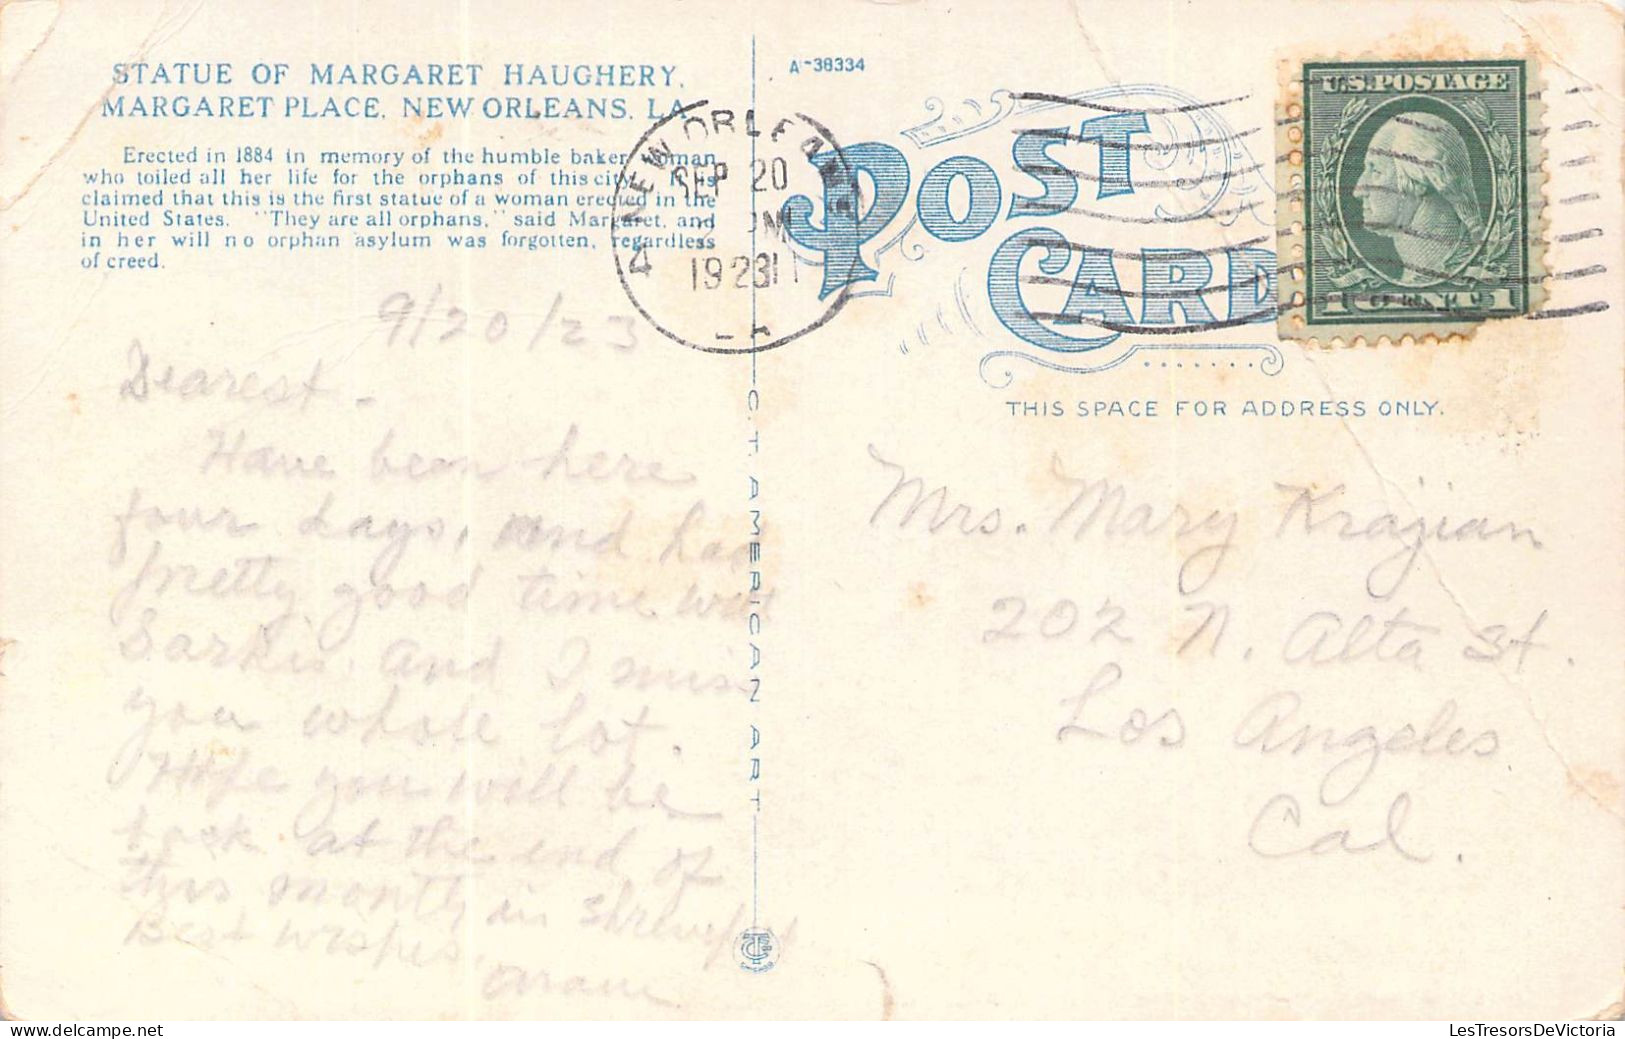 STATUE OF MARGARET HAUGHERY,
MARGARET PLACE, NEW ORLEANS, LA.
Erected in 1884 in memory of the humble baker woman
who toiled all her life for the orphans of this city. It is
claimed that this is the first statue of a woman erected in the
United States. "They are all orphans," said Margaret, and
in her will no orphan asylum was forgotten, regardless
of creed.
9/20/23
Dearest -
Have been here
four days, and had
pretty good time with
Sarkis. and I miss
you whole lot.
Hope you will be
back at the end of
this month in Shreveport
Best wishes.
Aram
C. T. AMERICAN ART
A-38334
NEW ORLEANS
SEP 20
PM
1923
LA
POST CARD
U.S. POSTAGE
1 CENT 1
THIS SPACE FOR ADDRESS ONLY.
Mrs. Mary Krajian
202 N. Alta St.
Los Angeles
Cal.
LesTresorsDeVictoria.com
www.delcampe.net